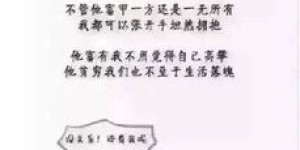 不管他富甲一方还是一无所有
我都可以张开手坦然拥抱
他富有我不用觉得自己高攀
他贫穷我们也不至于生活落魄
没关系！还有我呢